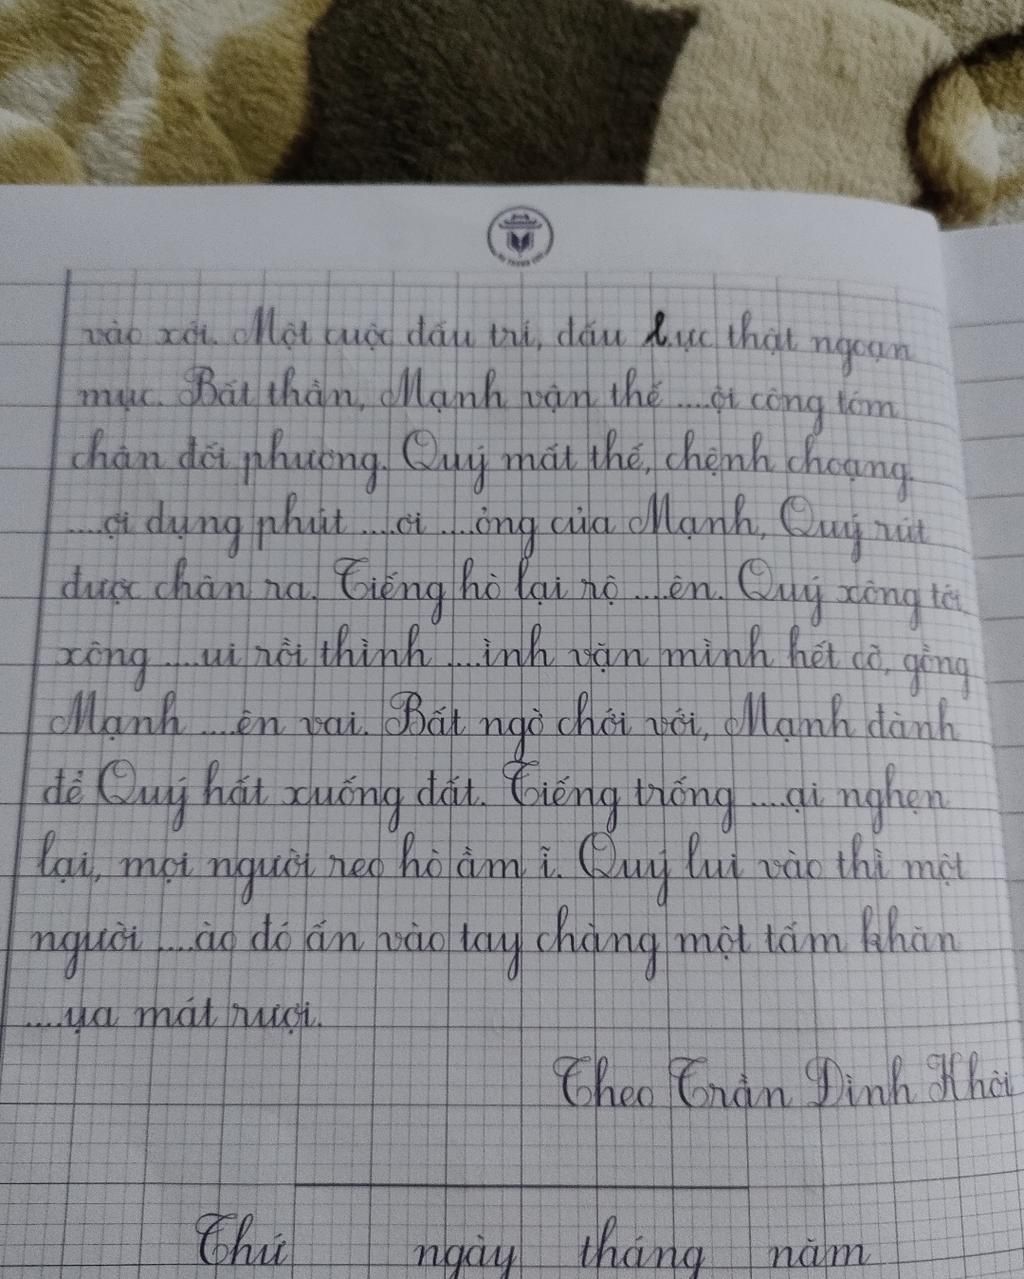 vào xới. Một cuộc đấu trí, đấu lực thật ngoạn
mục. Bất thần, Mạnh vận thế ....ội công tóm
chân đối phương. Quý mất thế, chệnh choạng.
....ợi dụng phút ....ơi ....ỏng của Mạnh, Quý rút
được chân ra. Tiếng hò lại rộ ....ên. Quý xông tới,
xông ....ui rồi thình ....ình vặn mình hết cỡ, gồng
Mạnh ....ên vai. Bất ngờ chới với, Mạnh đành
để Quý hất xuống đất. Tiếng trống ....ại nghẹn
lại, mọi người reo hò ầm ĩ. Quý lui vào thì một
người ....ào đó ấn vào tay chàng một tấm khăn
....ụa mát rượi.
Theo Trần Đình Khôi
Thứ ngày tháng năm